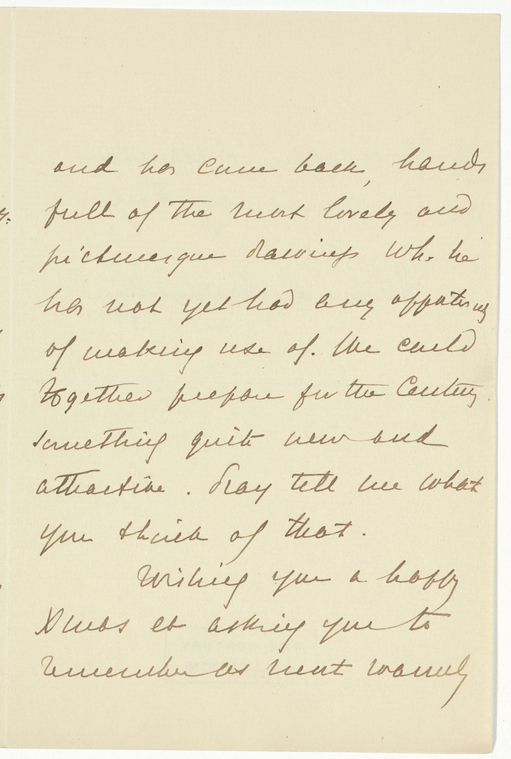 and has come back, hands
full of the most lovely and
picturesque drawings wh. he
has not yet had any opportunity
of making use of. We could
together prepare for the Century
something quite new and
attractive. Pray tell me what
you think of that.
Wishing you a happy
Xmas et asking you to
remember as most warmly